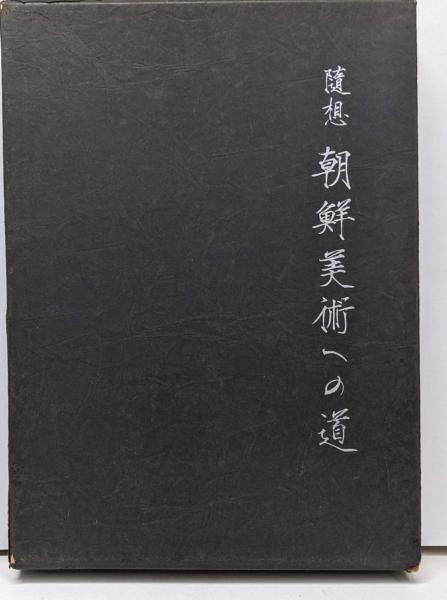 隨想 朝鮮美術への道